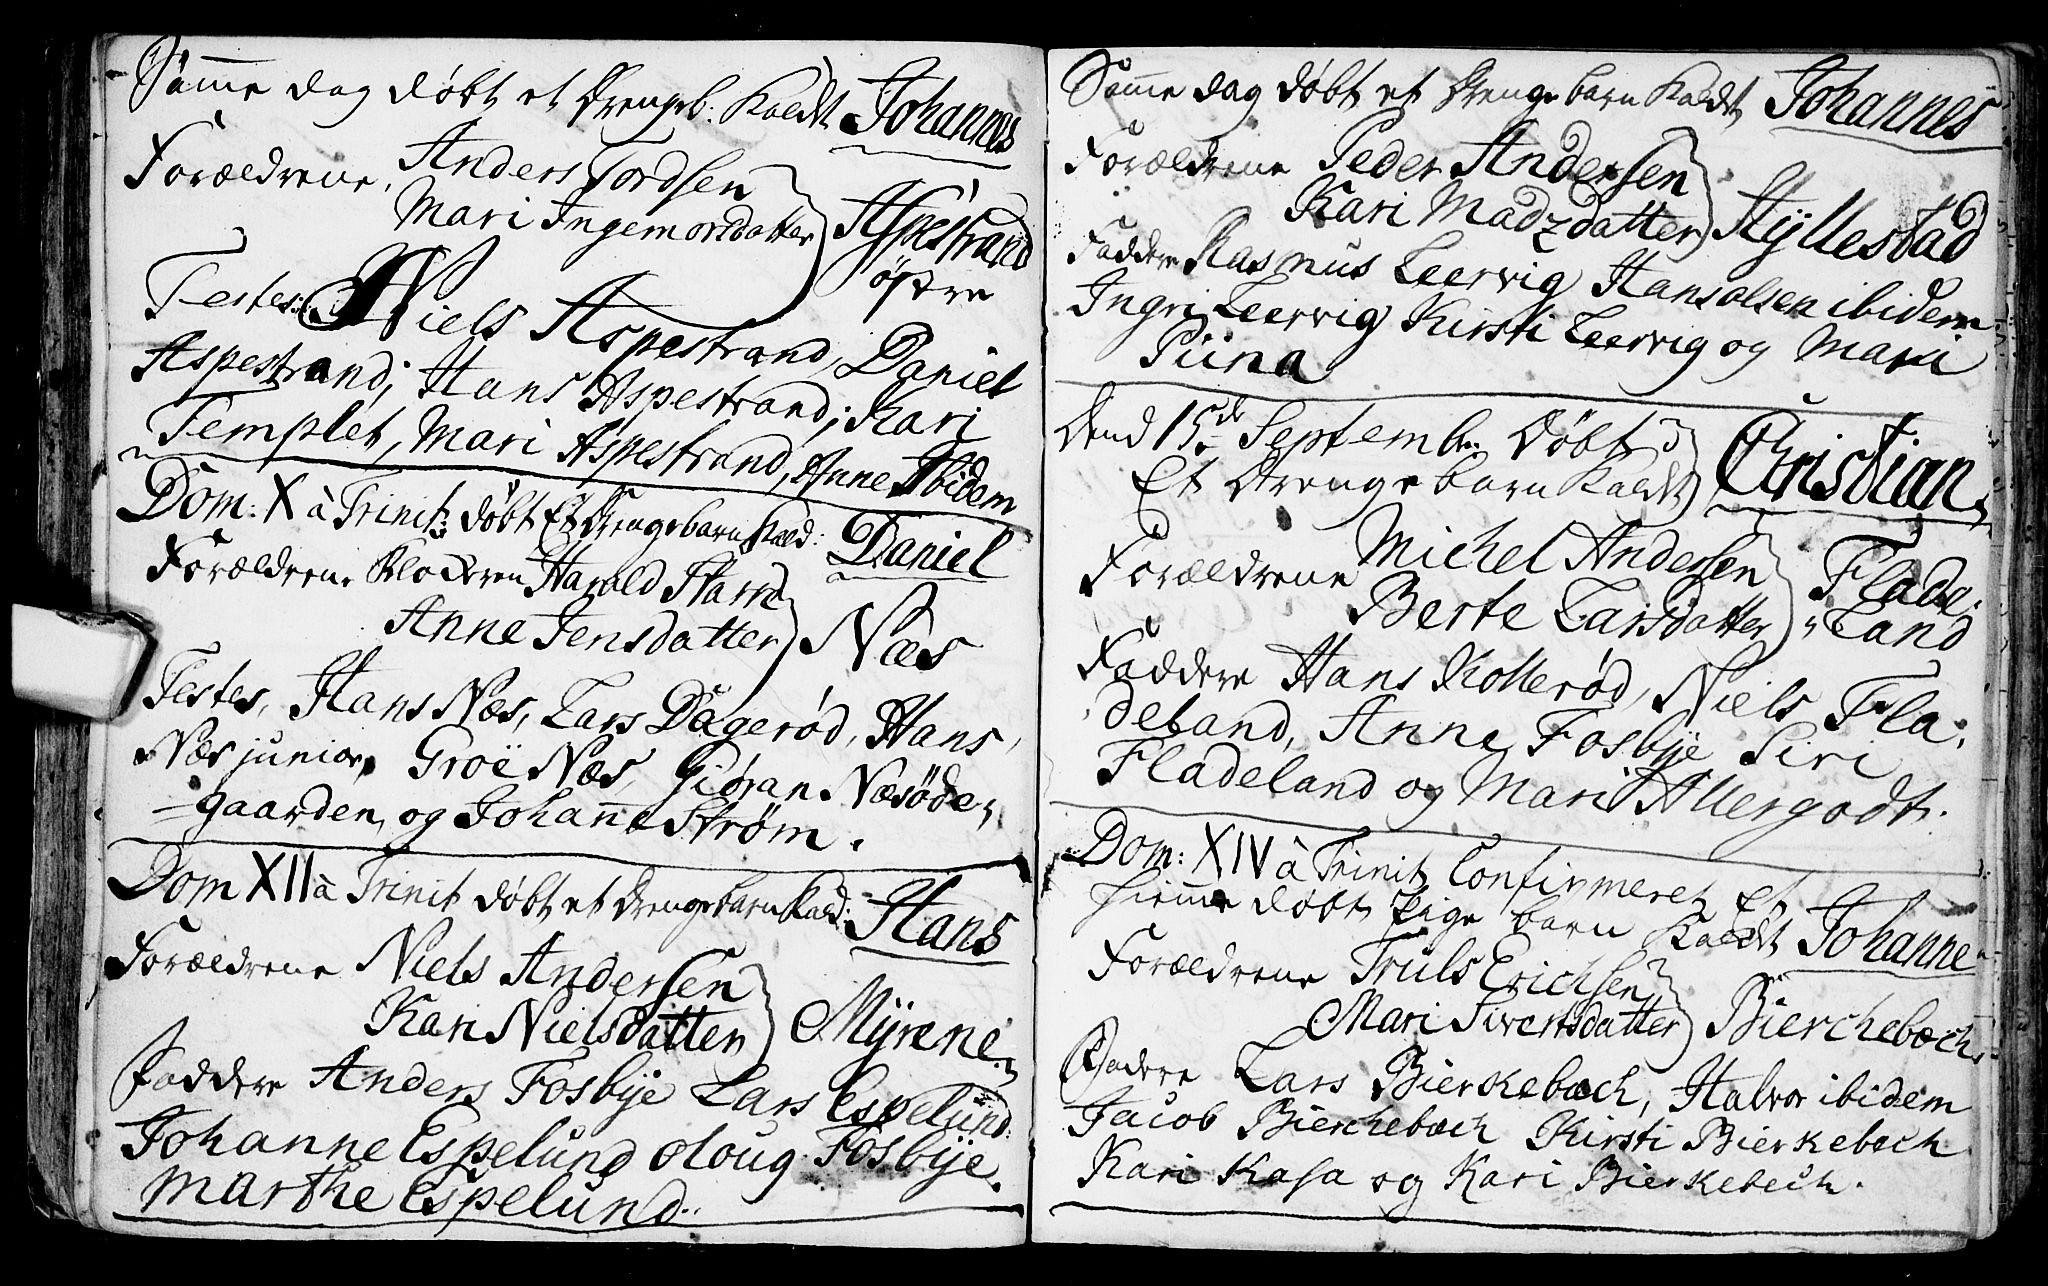 Samme dag døbt et Drengeb: Kaldt Johannes
Forældrene, Anders Tordsen
Mari Ingemorsdatter Aspestrand
østre
Testes: Niels Aspestrand, Daniel
Aspestrand; Hans Aspestrand; Kari
Templet, Mari Aspestrand, Anne Ibidem
Dom: X à Trinit: døbt Et Drengebarn Kald: Daniel
Forældrene Klockeren Harald
Anne Jensdatter Næs
Testes, Hans Næs, Lars Dagerød, Hans
Næs junior, Groë Næs, Giøran Næsøde-
gaarden, og Johanne Strøm.
Dom XII à Trinit døbt et Drengebarn Kald: Hans
Forældrene Niels Andersen
Kari Nielsdatter Myrene
Faddere Anders Fosbye Lars Espelund
Johanne Espelund Oloug Fosbye
Marthe Espelund.
Samme dag døbt et Drengebarn Kaldt Johannes
Forældrene Peder Andersen
Kari Madzdatter Hyllestad
Faddere Rasmus Leervig Hans Olsen ibidem
Ingri Leervig Kirsti Leervig og Mari
Piina
Dend 15de Septemb: Døbt
Et Drengebarn Kaldt Christian
Forældrene Michel Andersen Flade-
Berte Larsdatter Land
Faddere Hans Kollerød, Niels Fla-
deland, Anne Fosbye Siri
Fladeland og Mari Allergodt.
Dom: XIV à Trinit Confirmeret Et
hiemme døbt Pige barn Kaldt Johanne
Forældrene Truls Erichsen
Mari Sivertsdatter Bierchebæch
Faddere Lars Bierkebæch, Halvor ibidem
Jacob Bierchebæch Kirsti Bierkebæch
Kari Kasa og Kari Bierkebech.